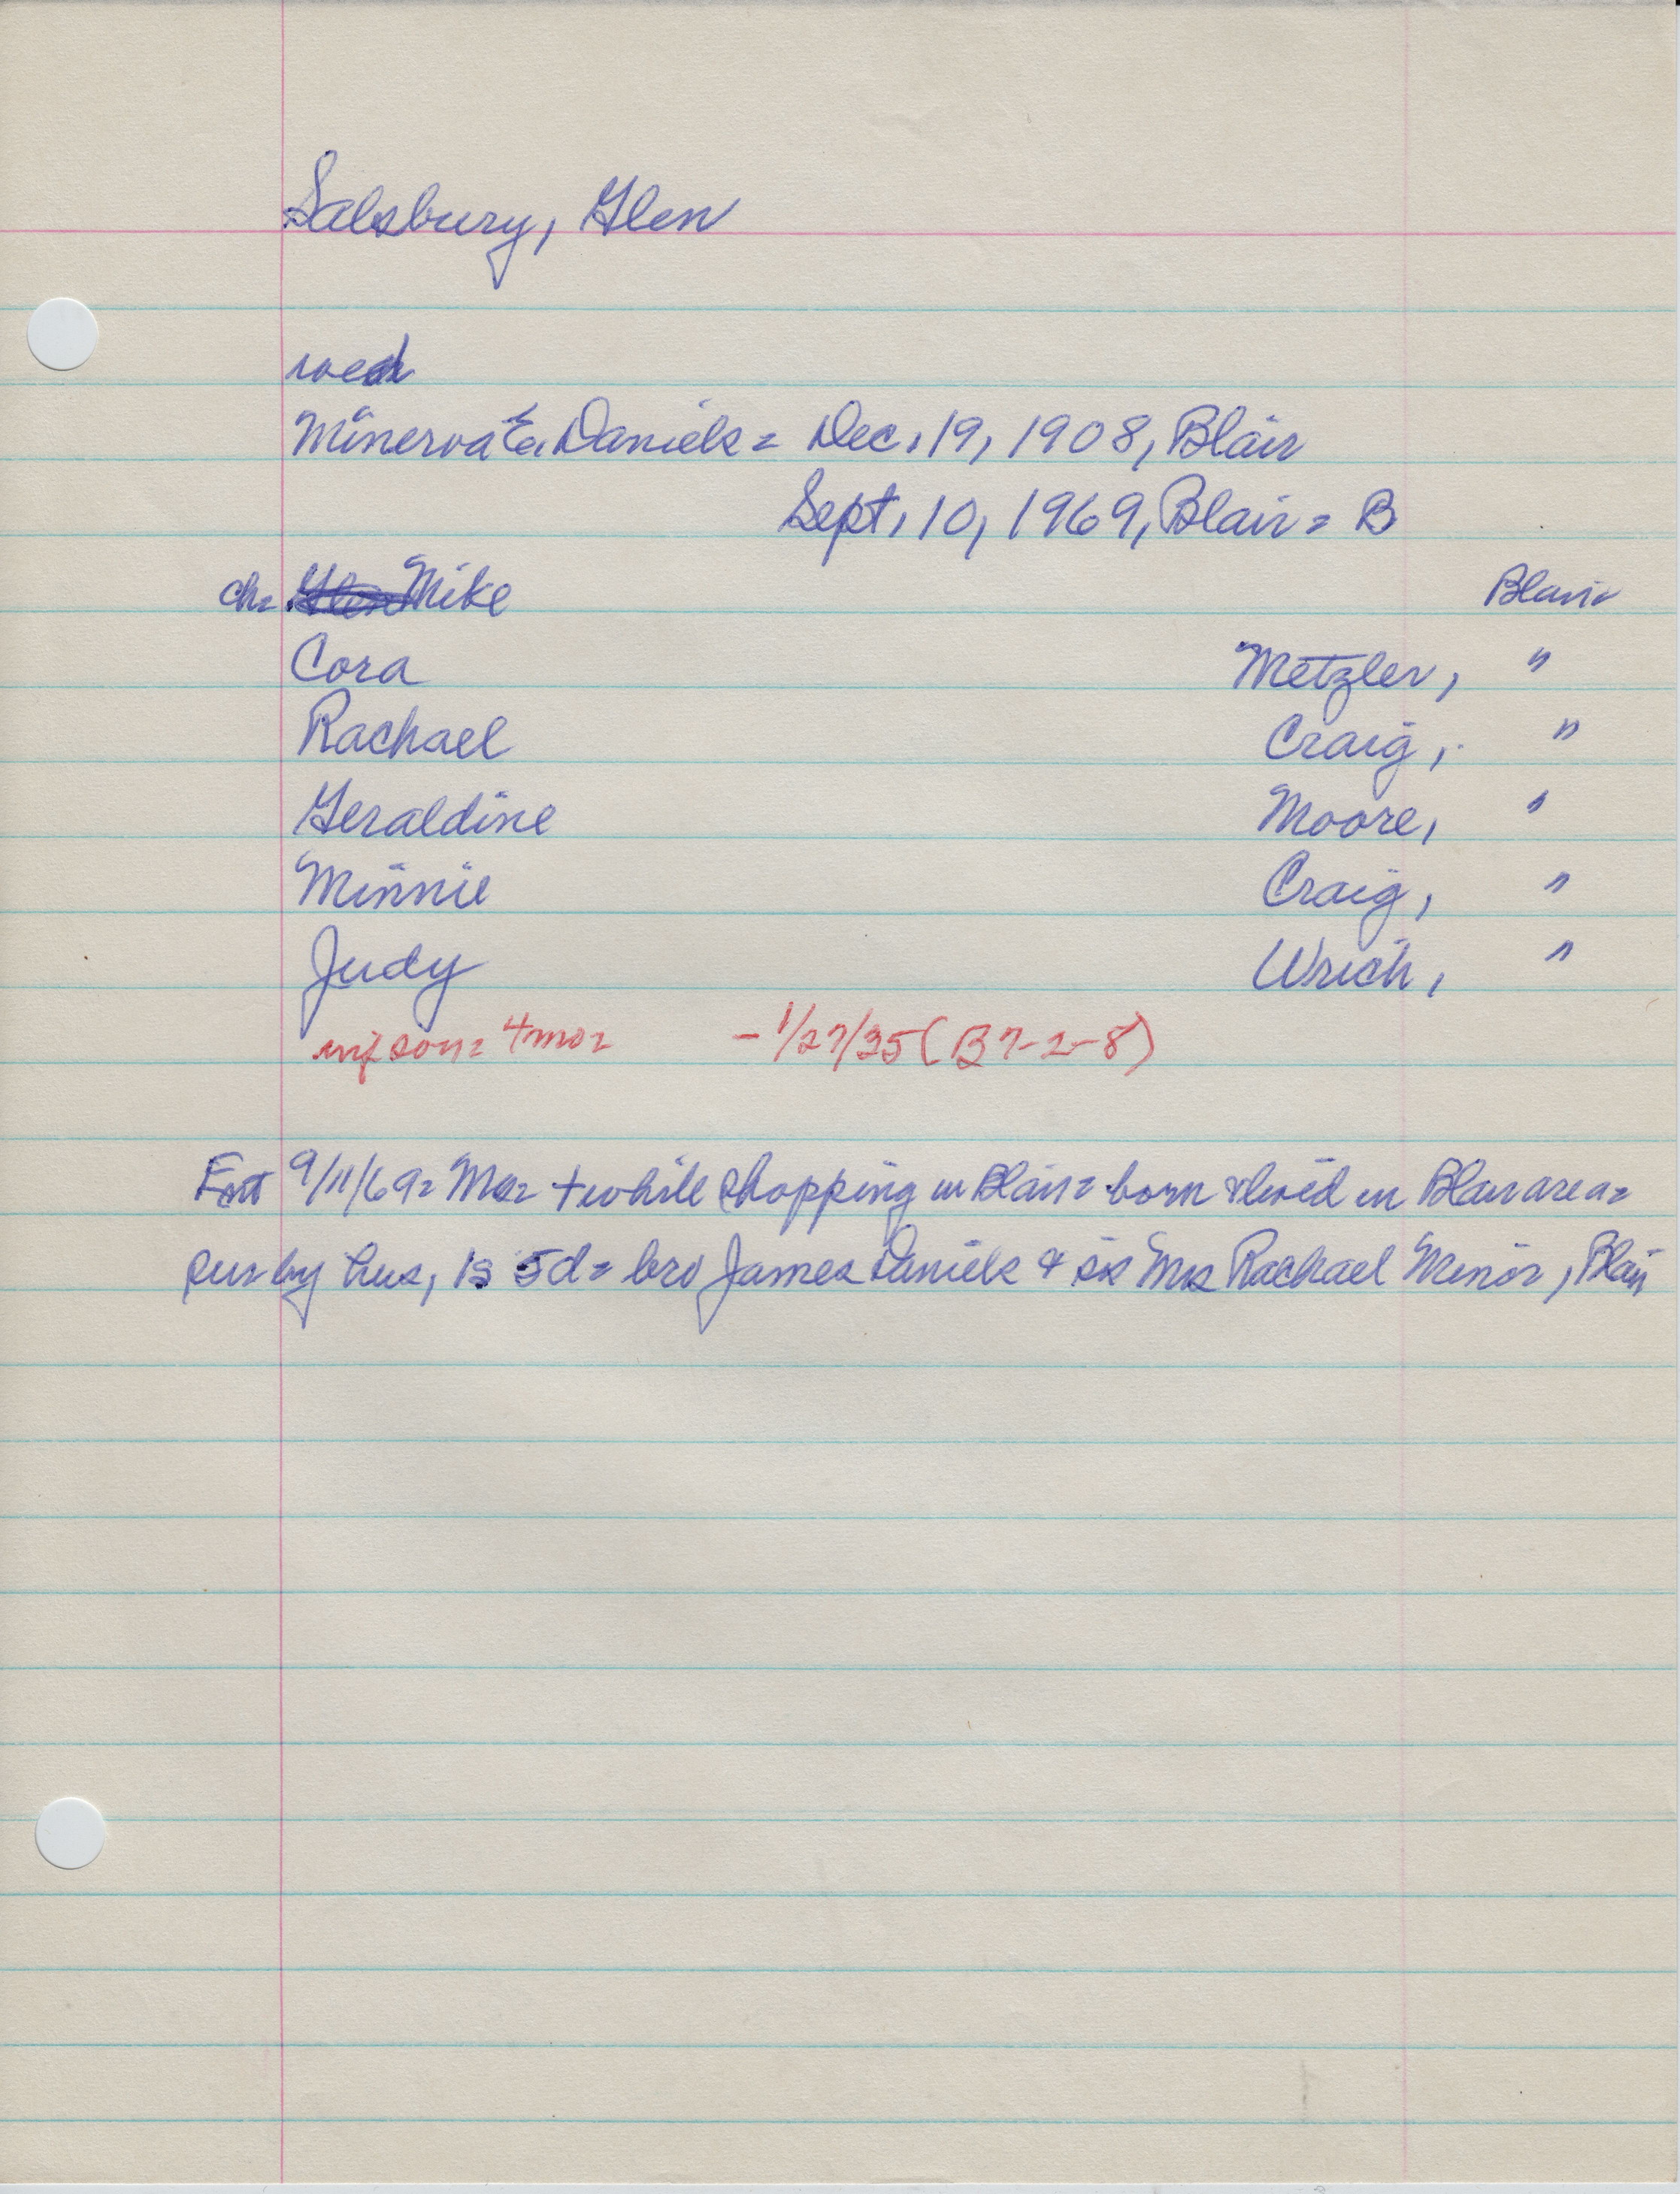 Salsbury, Glen
wed
Minerva E. Daniels = Dec. 19, 1908, Blair
Sept. 10, 1969, Blair = B
ch= Glen Mike Blair
Cora Metzler, "
Rachael Craig, "
Geraldine Moore, "
Minnie Craig, "
Judy Wrich, "
inf son = 4 mo = - 1/27/35 (B 7-2-8)
Ent 9/11/69 = Mrs = + while shopping in Blair = born & lived in Blair area =
sur by hus, 1s 5d = bro James Daniels & sis Mrs Rachael Minor, Blair